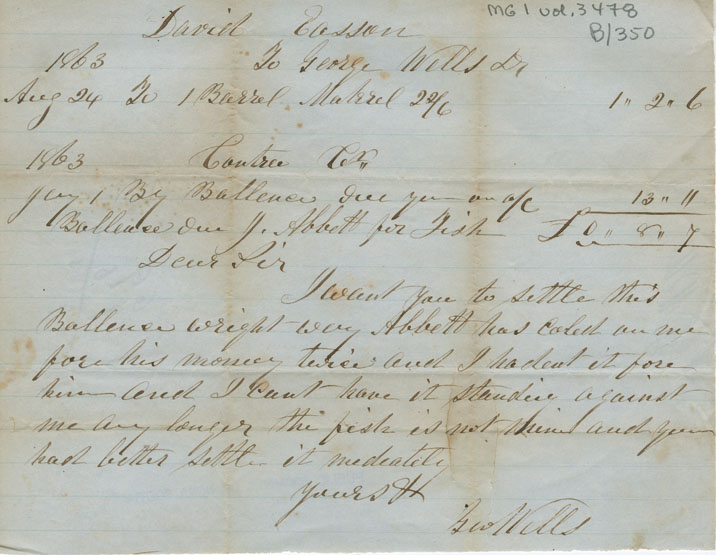 MG 1 vol. 3478
B/350
David Easson
1863 To George Wells Dr
Aug 24 To 1 Barrel Makrel 22/6 1" 2" 6
1863 Contree Cr"
Jany 1 By Ballence due you on a/c 13" 11
Ballence due J. Abbett for Fish £0" 8" 7
Dear Sir
I want you to settle this
Ballence wright way Abbett has cold on me
fore his money twice and I hadent it fore
him and I cant have it standin against
me any longer the fish is not thine and you
had better settle it mediately
yours &
Geo Wells